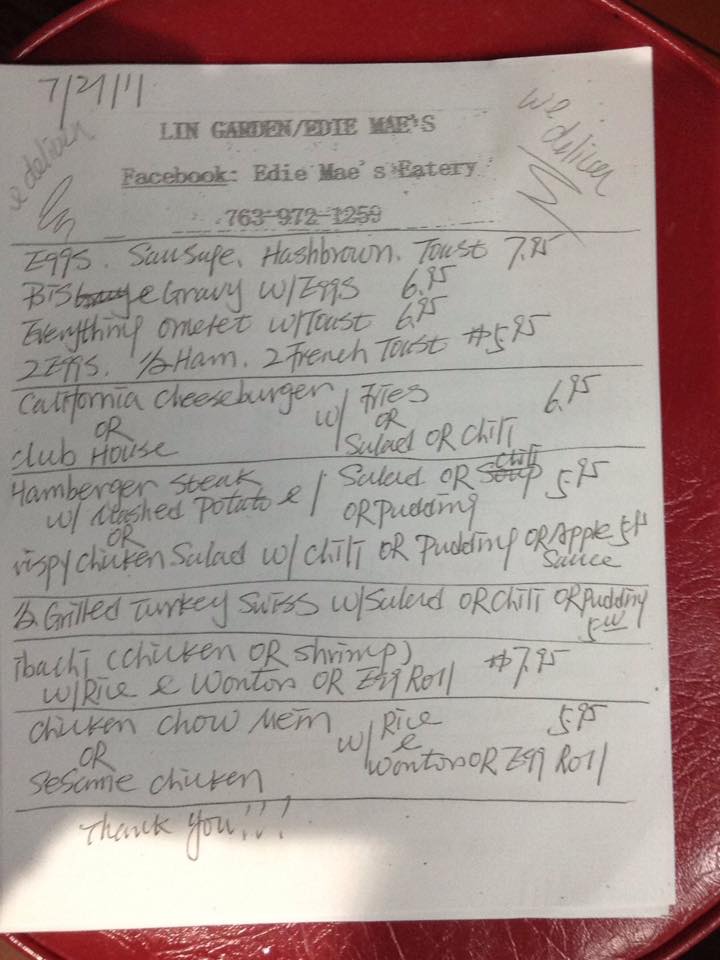 7/27/11
we deliver
we deliver
LIN GARDEN/EDIE MAE'S
Facebook: Edie Mae's Eatery
763-972-1259
Eggs. Sausage. Hashbrown. Toast 7.95
Gravy w/Eggs 6.95
Everything omelet w/Toast 6.95
2 Eggs. 1/2 Ham. 2 French Toast #5.95
California cheeseburger w/ Fries 6.95
OR OR
Club House Salad OR Chili
Hamberger Steak Salad OR Chili 5.95
w/ Mashed Potato & / OR Pudding
OR
rispy Chicken Salad w/ Chili OR Pudding OR Apple
Sauce
1/2 Grilled Turkey Swiss w/Salad OR Chili OR Pudding
ibachi (chicken OR shrimp) #7.95
w/Rice & Wonton OR Egg Roll
Chicken Chow Mein w/ Rice 5.95
OR &
Sesame Chicken Wonton OR Egg Roll
Thank you!!!